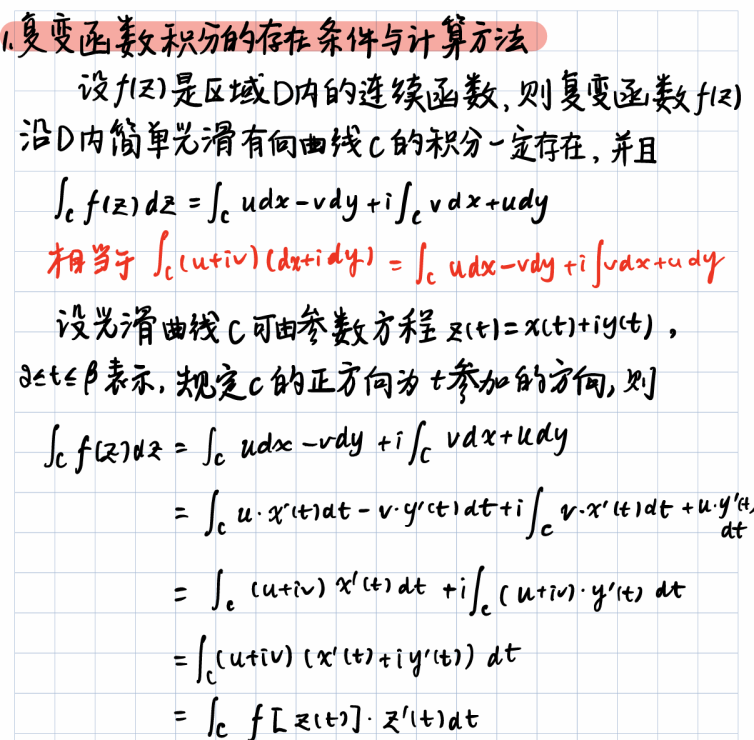 1.复变函数积分的存在条件与计算方法
设f(z)是区域D内的连续函数,则复变函数f(z)
沿D内简单光滑有向曲线C的积分一定存在,并且
∫_C f(z)dz = ∫_C udx-vdy + i∫_C vdx+udy
相当于 ∫_C (u+iv)(dx+idy) = ∫_C udx-vdy + i∫vdx+udy
设光滑曲线C可由参数方程 z(t)=x(t)+iy(t),
∂≤t≤β表示,规定C的正方向为t参加的方向,则
∫_C f(z)dz = ∫_C udx-vdy + i∫_C vdx+udy
= ∫_C u·x'(t)dt - v·y'(t)dt + i∫_C v·x'(t)dt + u·y'(t)dt
= ∫_C (u+iv)x'(t)dt + i∫_C (u+iv)·y'(t)dt
= ∫_C (u+iv)(x'(t)+iy'(t))dt
= ∫_C f[z(t)]·z'(t)dt